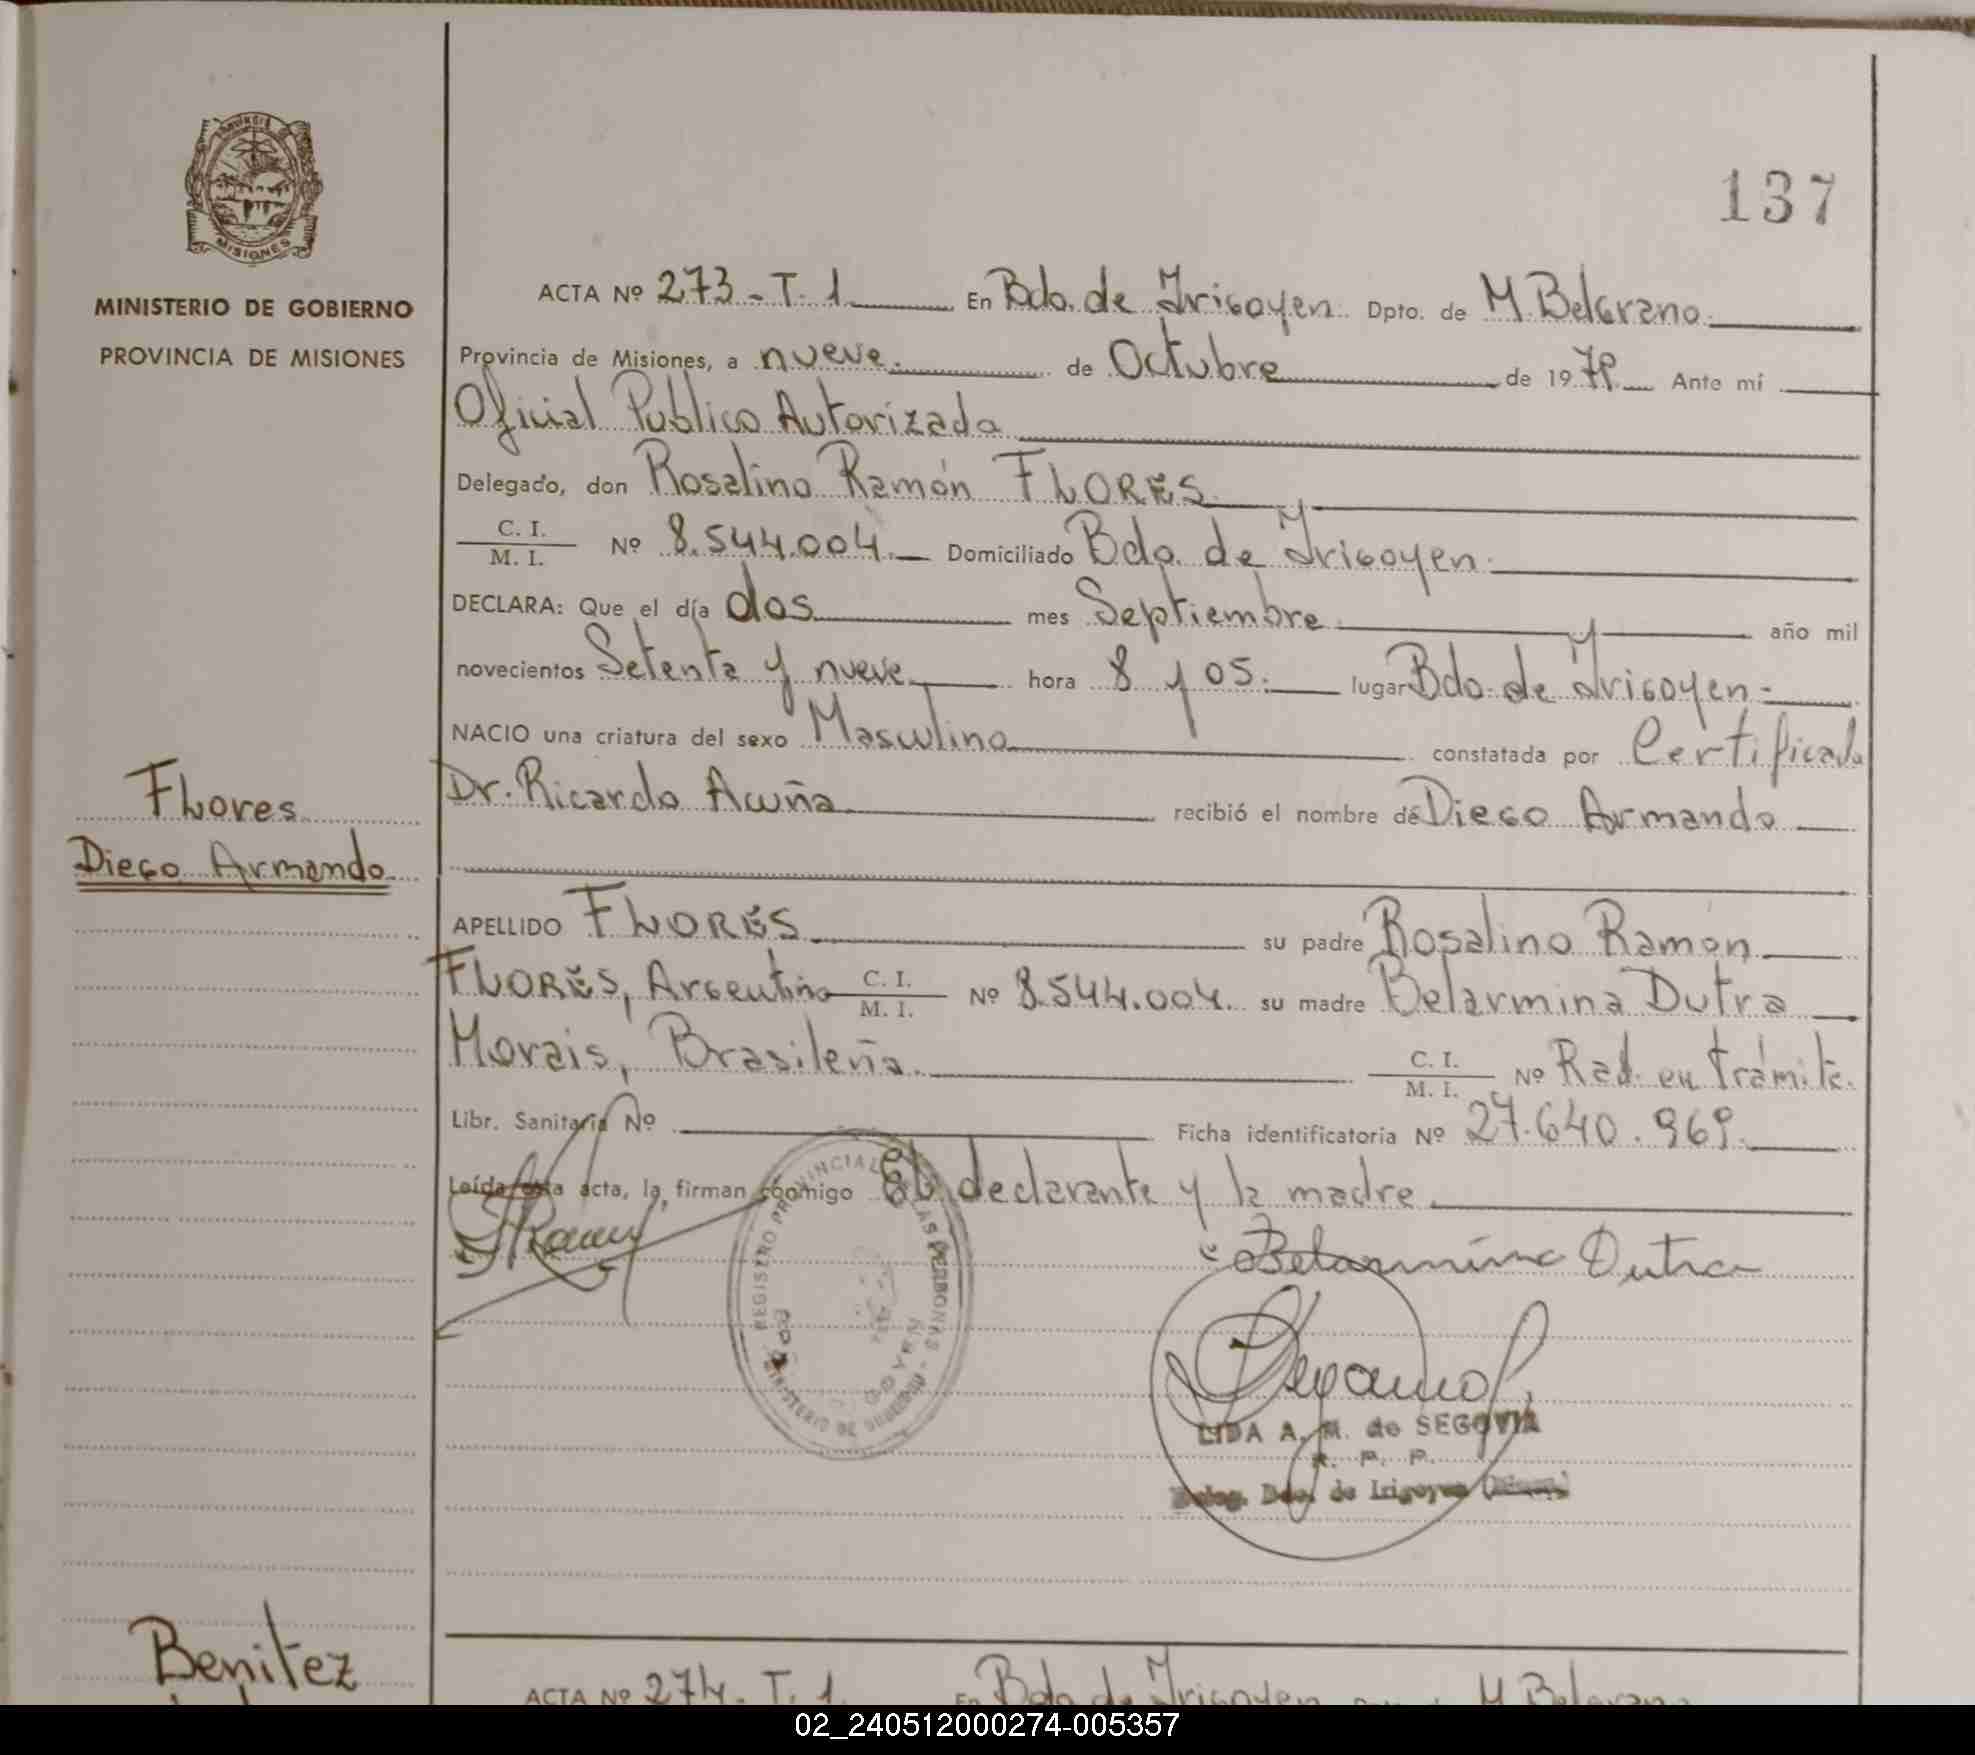 PROVINCIA DE
MISIONES
MINISTERIO DE GOBIERNO
PROVINCIA DE MISIONES
137
ACTA Nº 273 - T. 1 En Bdo. de Irigoyen. Dpto. de M. Belgrano.
Provincia de Misiones, a nueve. de Octubre de 19 79. Ante mi
Oficial Publico Autorizada
Delegado, don Rosalino Ramón FLORES
C. I. / M. I. Nº 8.544.004. Domiciliado Bdo. de Irigoyen.
DECLARA: Que el día dos mes Septiembre año mil
novecientos Setenta y nueve hora 8 y 05. lugar Bdo. de Irigoyen.
NACIO una criatura del sexo Masculino constatada por Certificado
Dr. Ricardo Acuña recibió el nombre de Diego Armando
Flores
Diego Armando
APELLIDO FLORES su padre Rosalino Ramón
FLORES, Argentino C. I. / M. I. Nº 8.544.004. su madre Belarmina Dutra
Morais, Brasileña. C. I. / M. I. Nº Rad. en trámite.
Libr. Sanitaria Nº Ficha identificatoria Nº 27.640.969.
Leída esta acta, la firman conmigo El declarante y la madre
Belarmina Dutra
REGISTRO PROVINCIAL DE LAS PERSONAS - MINISTERIO DE GOBIERNO
LIDA A. M. de SEGOVIA
R. P. P.
Deleg. Bdo. de Irigoyen
Benitez
ACTA Nº 274. T. 1. En Bdo de Irigoyen M Belgrano
02_240512000274-005357